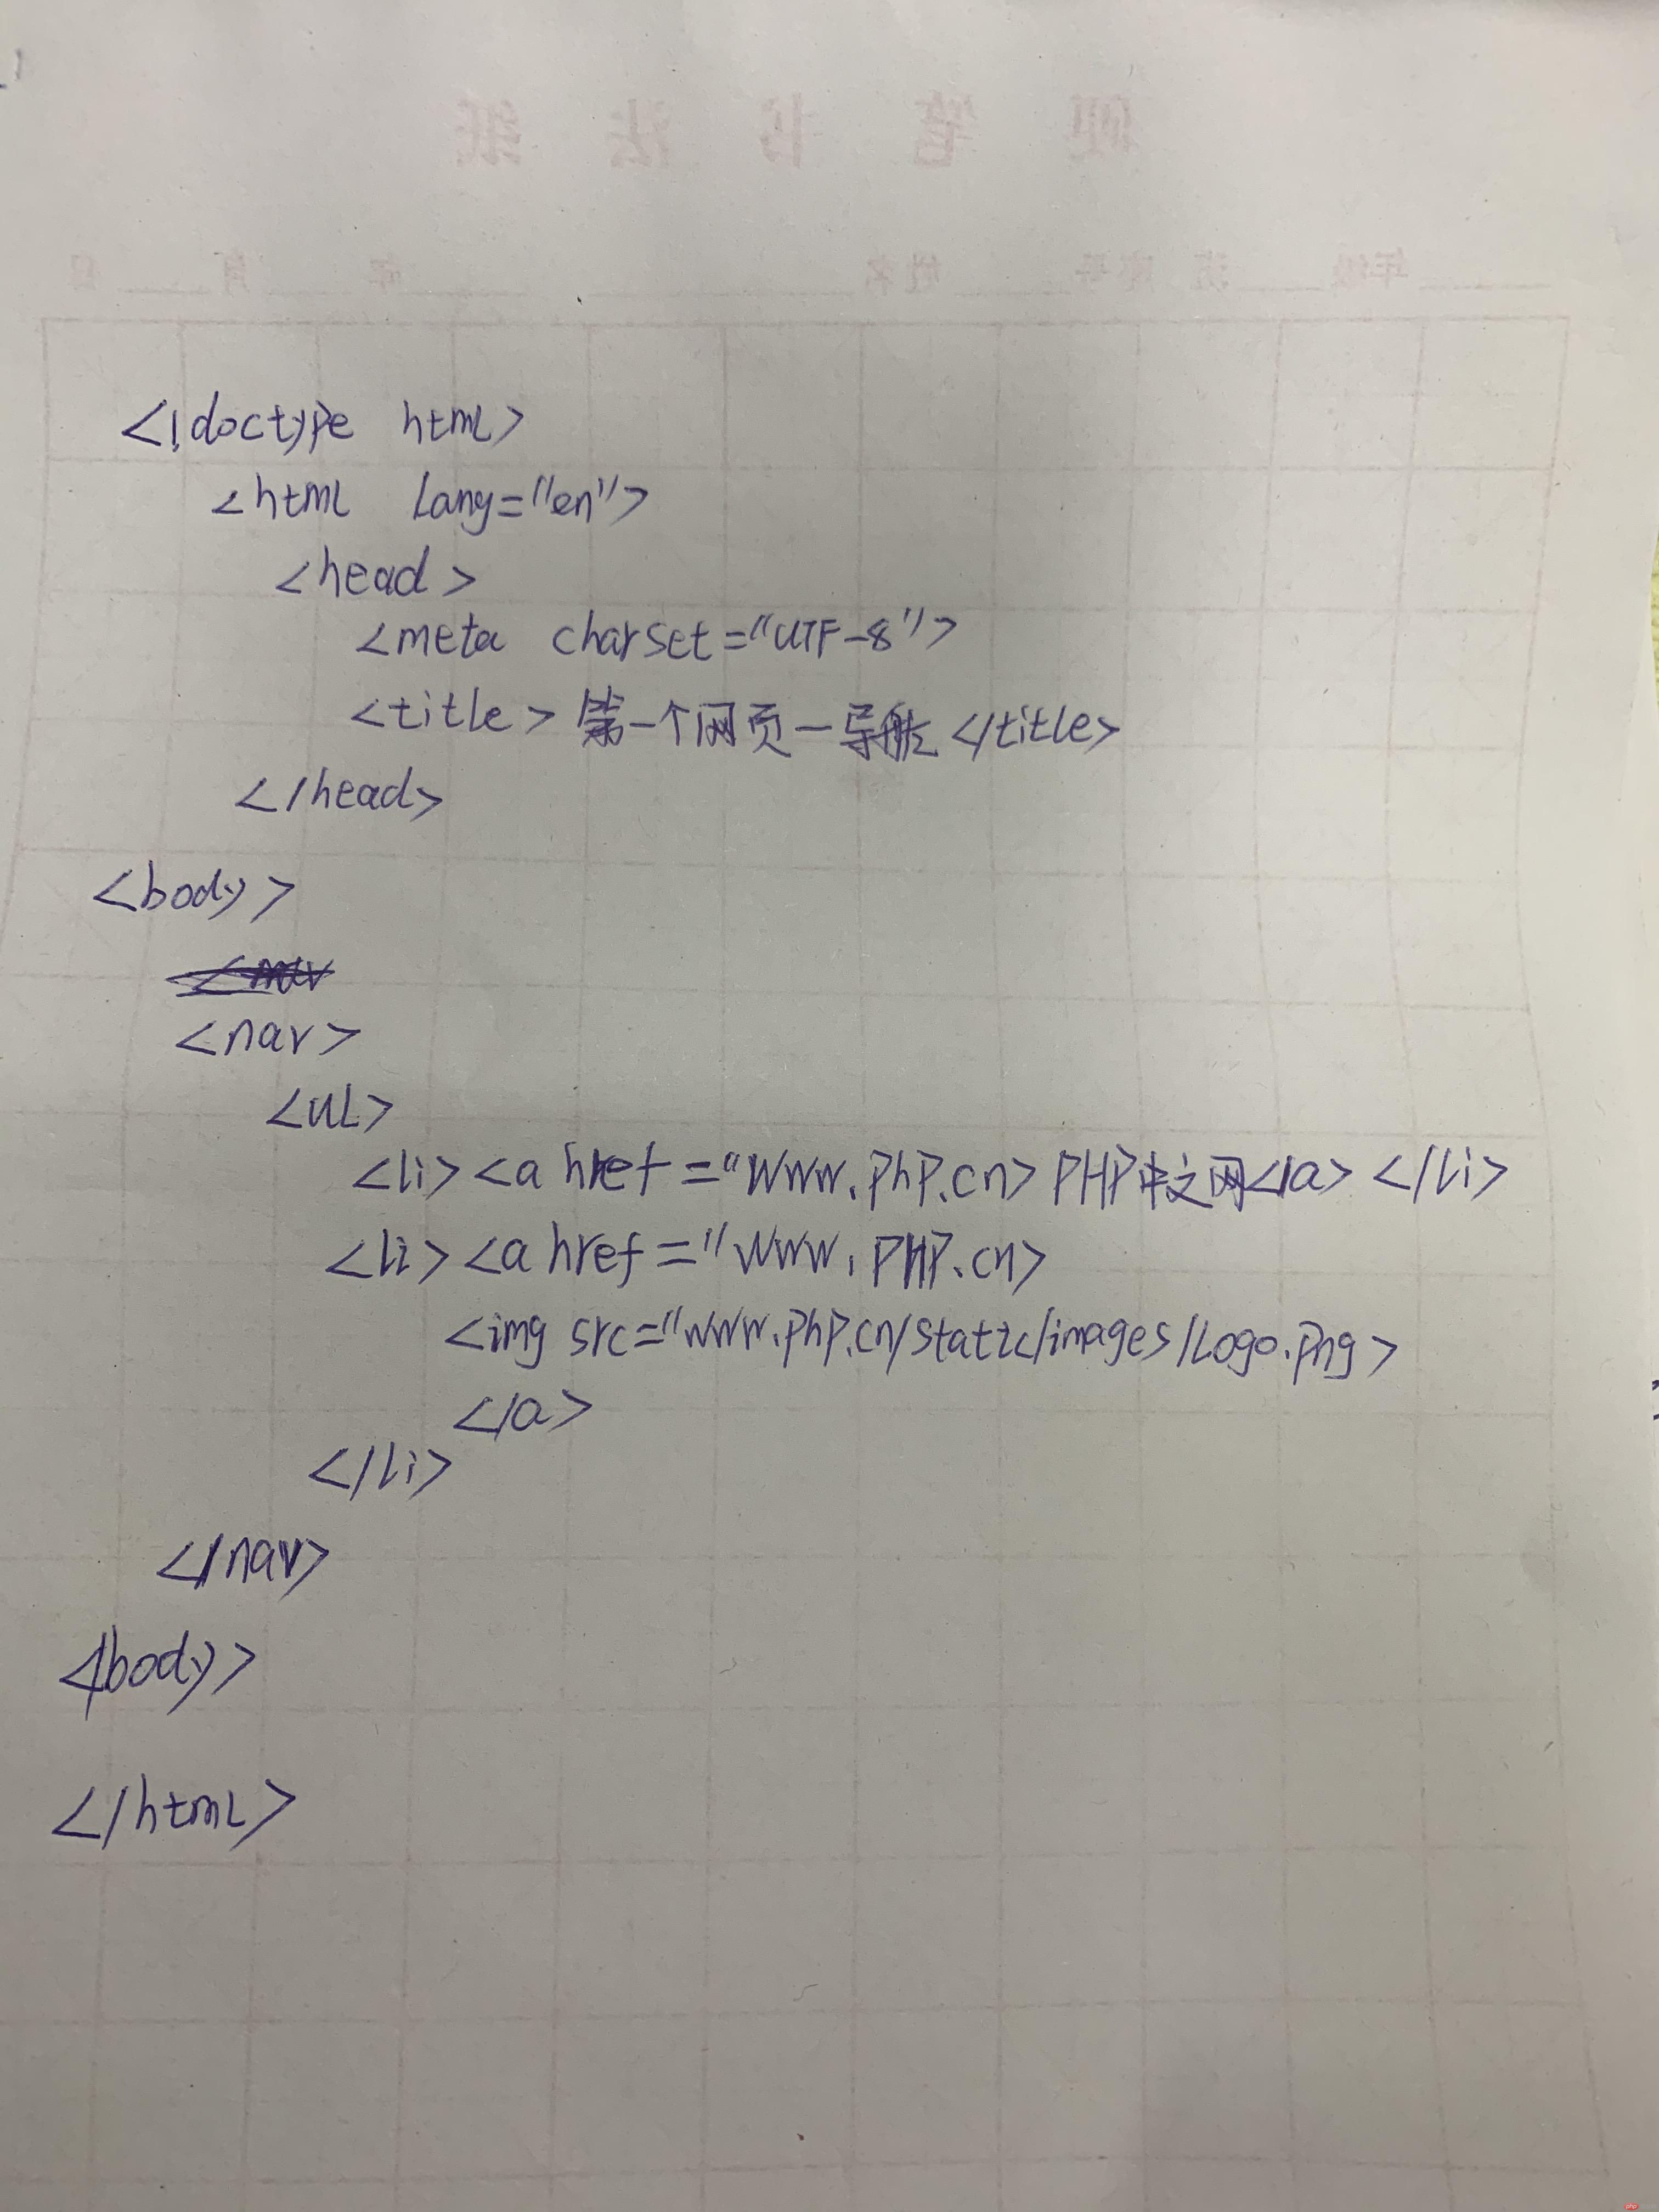 硬笔书法纸
年级 班 座号 姓名 年 月 日
<!doctype html>
<html lang="en">
<head>
<meta charset="UTF-8">
<title>第一个网页一导航</title>
</head>
<body>
<nav>
<ul>
<li><a href="www.php.cn>PHP中文网</a></li>
<li><a href="www.PHP.cn>
<img src="www.php.cn/static/images/logo.png>
</a>
</li>
</nav>
</body>
</html>